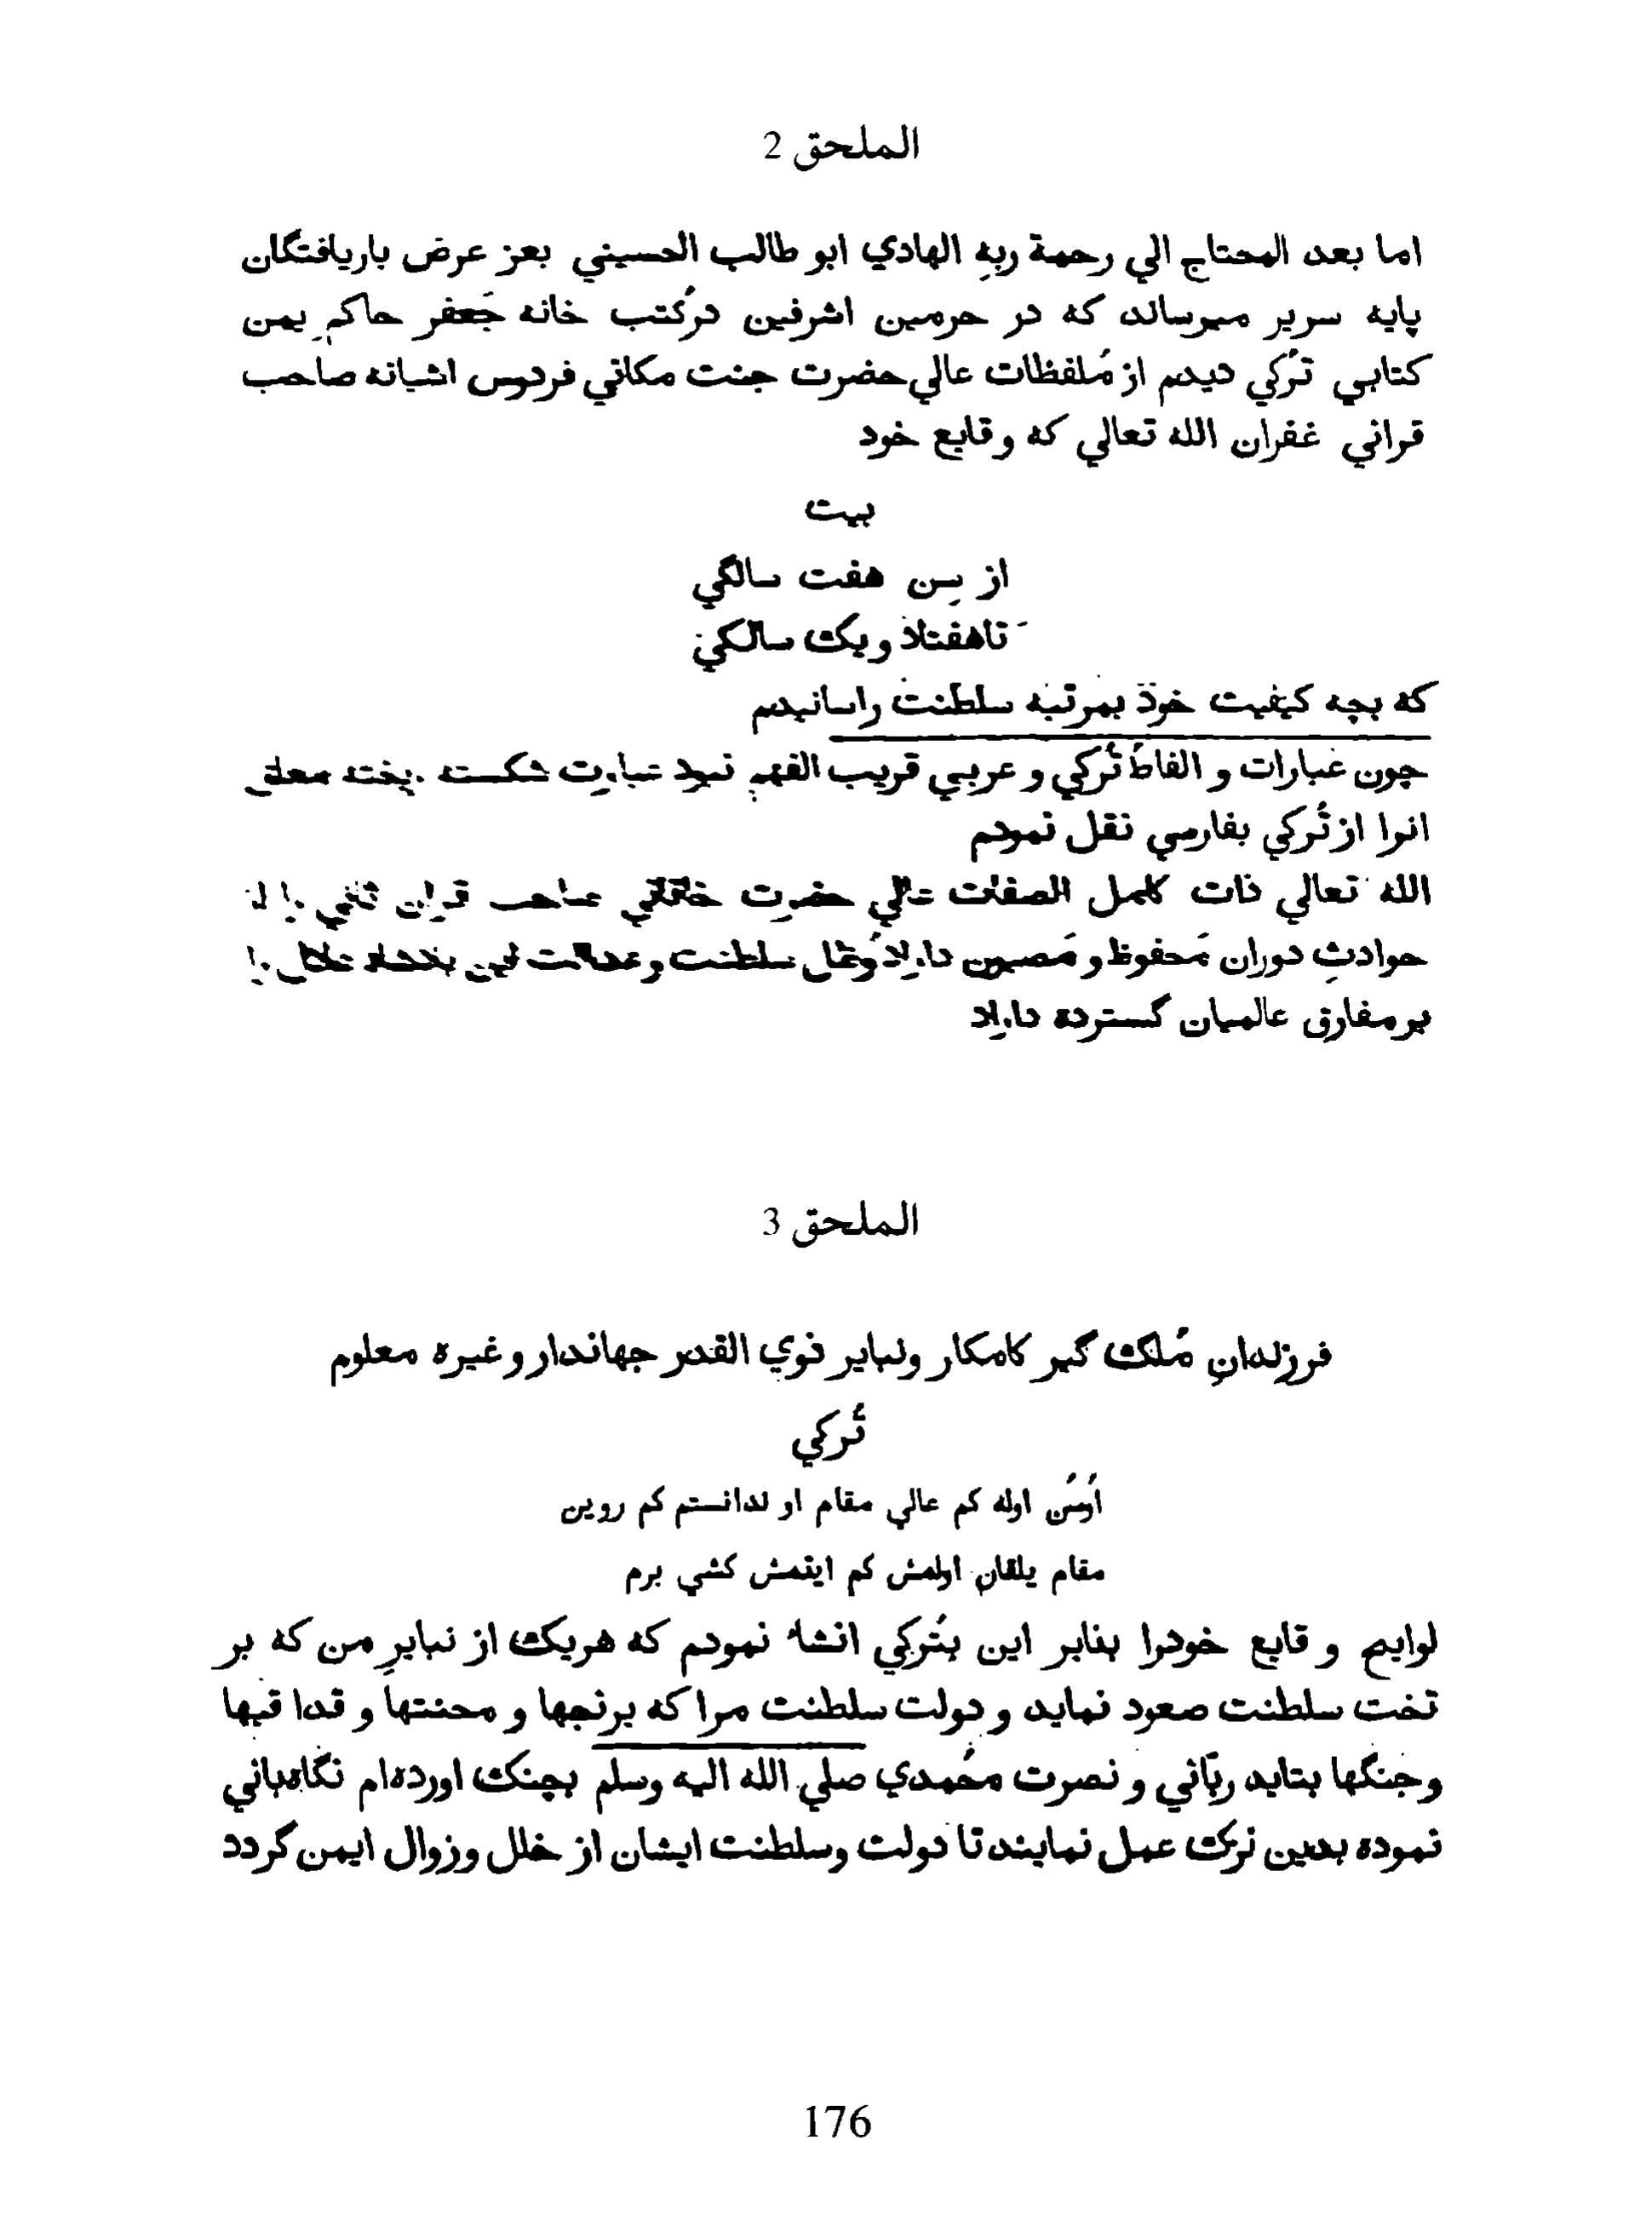 الملحق 2
اما بعد المحتاج الي رحمة ربه الهادي ابو طالب الحسيني بعز عرض باريافتگان
پايه سرير ميرساند كه در حرمين اشرفين دركتب خانه جَعفر حاكم يمن
كتابي تُركي ديدم از مُلفظات عالي حضرت جنت مكاني فردوس اشيانه صاحب
قراني غفران الله تعالي كه وقايع خود
بيت
از سِن هفت سالگي
تاهفتاد ويك سالكي
كه بچه كيفيت خود بمرتبه سلطنت راسانيدم
چون عبارات و الفاظ تُركي و عربي قريب الفهم نبود عبارت شكسته
انرا از تُركي بفارسي نقل نمودم
الله تعالي ذات كامل الصفات عالي حضرت خاقاني صاحب قران ثاني
حوادثِ دوران مَحفوظ و مَصون داراد وظل سلطنت وعدالت اين
بر مفارق عالميان گسترده داراد
الملحق 3
فرزندانِ مُلك گير كامكار ونباير ذوي القدر جهاندار وغيره معلوم
تُركي
اوله كم عالي مقام او ندانستم كم روين
مقام اولمش كم ايتمش كشي برم
نوايم و قايع خودرا بنابر اين بتُركي انشاء نمودم كه هريك از نبايرِ من كه بر
تخت سلطنت صعود نمايد و دولت سلطنت مرا كه برنجها و محنتها و قدا قيها
وجنگها بتايد ربّاني و نصرت محُمدي صلي الله اليه وسلم بچنك اورده‌ام نگاهباني
نموده بدين نزك عمل نمايند تا دولت وسلطنت ايشان از خلل وزوال ايمن گردد
176